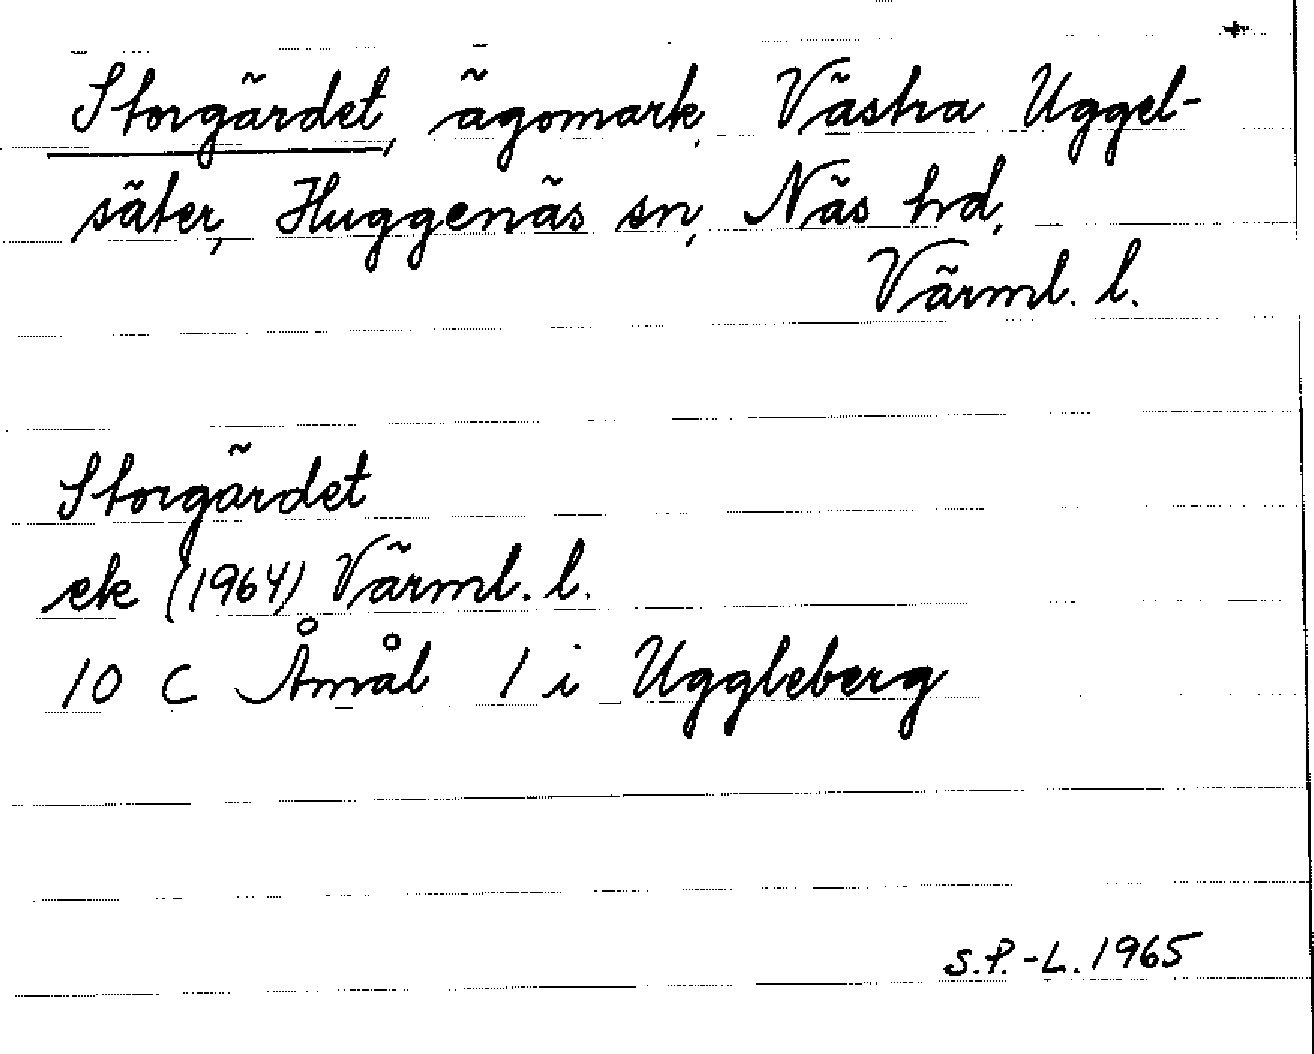 +
Storgärdet, ägomark, Västra Uggel-
säter, Huggenäs sn, Näs hd,
Värml. l.
Storgärdet
ek (1964) Värml. l.
10 C Åmål 1 i Uggleberg
S.P.-L. 1965